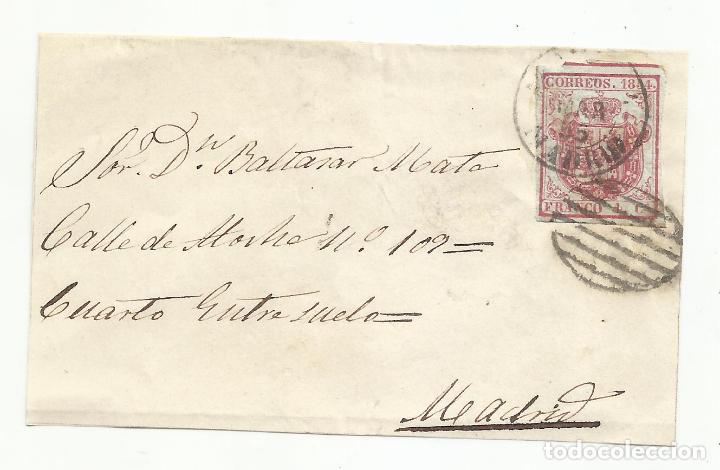 CORREOS. 1854.
MADRID
FRANCO 4. C.
Sor. Dn. Baltasar Mata
Calle de Atocha nº. 109=
Cuarto Entresuelo=
Madrid
todocoleccion
todocoleccion.net